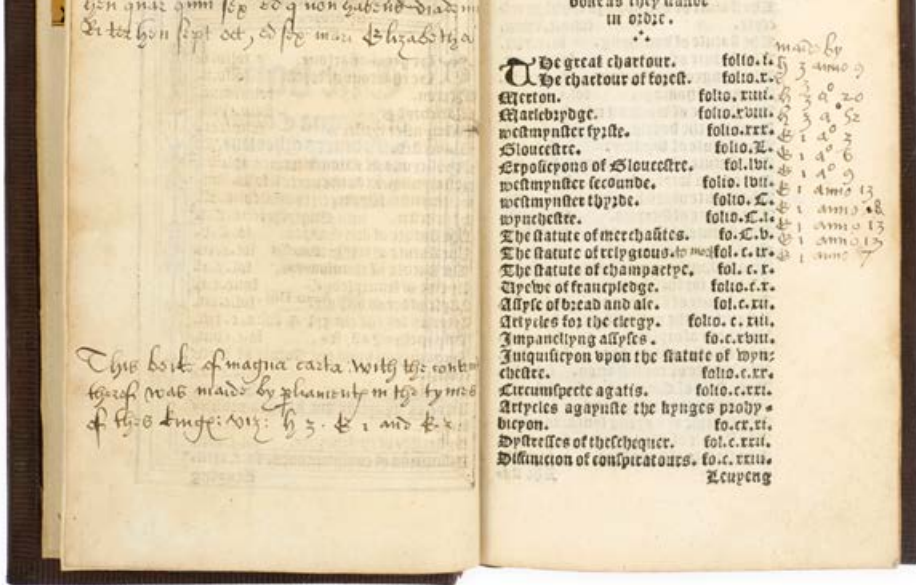 hen quar quin sex ed q non habend diadem
Ri ter hen sept oct, ed sex mari Elizabetha
This boke of magna carta with the
therof was maide by pliament in the tymes
of thes kinge: viz: h 3. E 1 and E 2.
in ordre.
The great chartour. folio.i.
The chartour of forest. folio.x.
Merton. folio.xiiii.
Marlebrydge. folio.xviii.
westmynster fyrste. folio.xxx.
Gloucestre. folio.L.
Exposicyons of Gloucestre. fol.lvi.
westmynster secounde. folio.lvii.
westmynster thyrde. folio.C.
wynchestre. folio.C.i.
The statute of merchaūtes. fo.C.v.
The statute of relygious. fol.c.ix.
The statute of champartye. fol.c.x.
Uyewe of francpledge. folio.c.x.
Assyse of bread and ale. fol.c.xii.
Artycles for the clergy. folio.c.xiii.
Impanellyng assyses. fo.c.xviii.
Inquisicyon vpon the statute of wyn:
chestre. folio.c.xx.
Circumspecte agatis. folio.c.xxi.
Artycles agaynste the kynges prohy-
bicyon. fo.cx.xi.
Dystresses of theschequer. fol.c.xxii.
Diffinicion of conspiratours. fo.c.xxiii.
Leupeng
maide by
h 3 anno 9
h 3 a° 20
h 3 a° 52
E 1 a° 3
E 1 a° 6
E 1 a° 9
E 1 anno 13
E 1 anno 18
E 1 anno 13
E 1 anno 13
E 1 anno 7